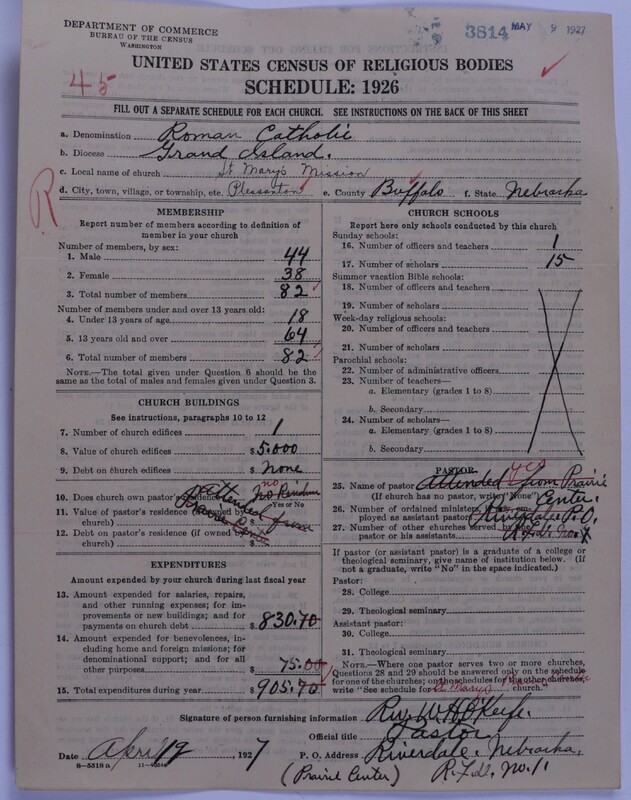 DEPARTMENT OF COMMERCE
BUREAU OF THE CENSUS
WASHINGTON
3814 MAY 9 1927
UNITED STATES CENSUS OF RELIGIOUS BODIES
45
SCHEDULE: 1926
FILL OUT A SEPARATE SCHEDULE FOR EACH CHURCH. SEE INSTRUCTIONS ON THE BACK OF THIS SHEET
a. Denomination Roman Catholic
b. Diocese Grand Island.
c. Local name of church St Mary's Mission
d. City, town, village, or township, etc. Pleasanton e. County Buffalo f. State Nebraska
R
MEMBERSHIP
Report number of members according to definition of member in your church
Number of members, by sex:
1. Male 44
2. Female 38
3. Total number of members 82
Number of members under and over 13 years old:
4. Under 13 years of age 18
5. 13 years old and over 64
6. Total number of members 82
NOTE.—The total given under Question 6 should be the same as the total of males and females given under Question 3.
CHURCH BUILDINGS
See instructions, paragraphs 10 to 12
7. Number of church edifices 1
8. Value of church edifices $5.000
9. Debt on church edifices $ None
10. Does church own pastor's residence? no
Yes or No
11. Value of pastor's residence (if owned by church) $
12. Debt on pastor's residence (if owned by church) $
Attended from
Prairie Center
EXPENDITURES
Amount expended by your church during last fiscal year
13. Amount expended for salaries, repairs, and other running expenses; for improvements or new buildings; and for payments on church debt $830.70
14. Amount expended for benevolences, including home and foreign missions; for denominational support; and for all other purposes 75.00
15. Total expenditures during year $905.70
CHURCH SCHOOLS
Report here only schools conducted by this church
Sunday schools:
16. Number of officers and teachers 1
17. Number of scholars 15
Summer vacation Bible schools:
18. Number of officers and teachers
19. Number of scholars
Week-day religious schools:
20. Number of officers and teachers
21. Number of scholars
Parochial schools:
22. Number of administrative officers
23. Number of teachers—
a. Elementary (grades 1 to 8)
b. Secondary
24. Number of scholars—
a. Elementary (grades 1 to 8)
b. Secondary
PASTOR
yes
25. Name of pastor Attended from Prairie
(If church has no pastor, write "None") Center.
26. Number of ordained ministers, if any, employed as assistant pastors Riverdale P.O.
27. Number of other churches served by the pastor or his assistants R.F.D. No 1
If pastor (or assistant pastor) is a graduate of a college or theological seminary, give name of institution below. (If not a graduate, write "No" in the space indicated.)
Pastor:
28. College
29. Theological seminary
Assistant pastor:
30. College
31. Theological seminary
NOTE.—Where one pastor serves two or more churches, Questions 28 and 29 should be answered only on the schedule for one of the churches; on the schedules for the other churches, write "See schedule for St Mary's church."
Signature of person furnishing information Rev W H O'Keefe.
Official title Pastor
Date April 19, 1927 P. O. Address Riverdale, Nebraska,
8—5518 a
(Prairie Center) R.F.D. No. 1